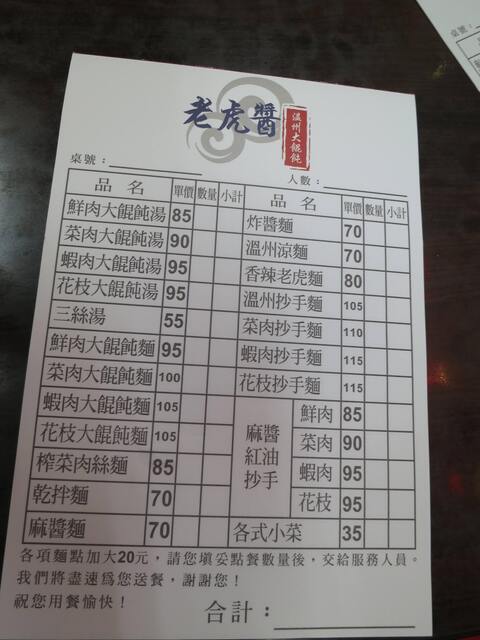 老虎醬
溫州大餛飩
桌號：
人數：
品名 單價 數量 小計 品名 單價 數量 小計
鮮肉大餛飩湯 85 炸醬麵 70
菜肉大餛飩湯 90 溫州涼麵 70
蝦肉大餛飩湯 95 香辣老虎麵 80
花枝大餛飩湯 95 溫州抄手麵 105
三絲湯 55 菜肉抄手麵 110
鮮肉大餛飩麵 95 蝦肉抄手麵 115
菜肉大餛飩麵 100 花枝抄手麵 115
蝦肉大餛飩麵 105 麻醬紅油抄手 鮮肉 85
花枝大餛飩麵 105 菜肉 90
榨菜肉絲麵 85 蝦肉 95
乾拌麵 70 花枝 95
麻醬麵 70 各式小菜 35
各項麵點加大20元，請您填妥點餐數量後，交給服務人員。
我們將盡速為您送餐，謝謝您！
祝您用餐愉快！
合計：
桌號：